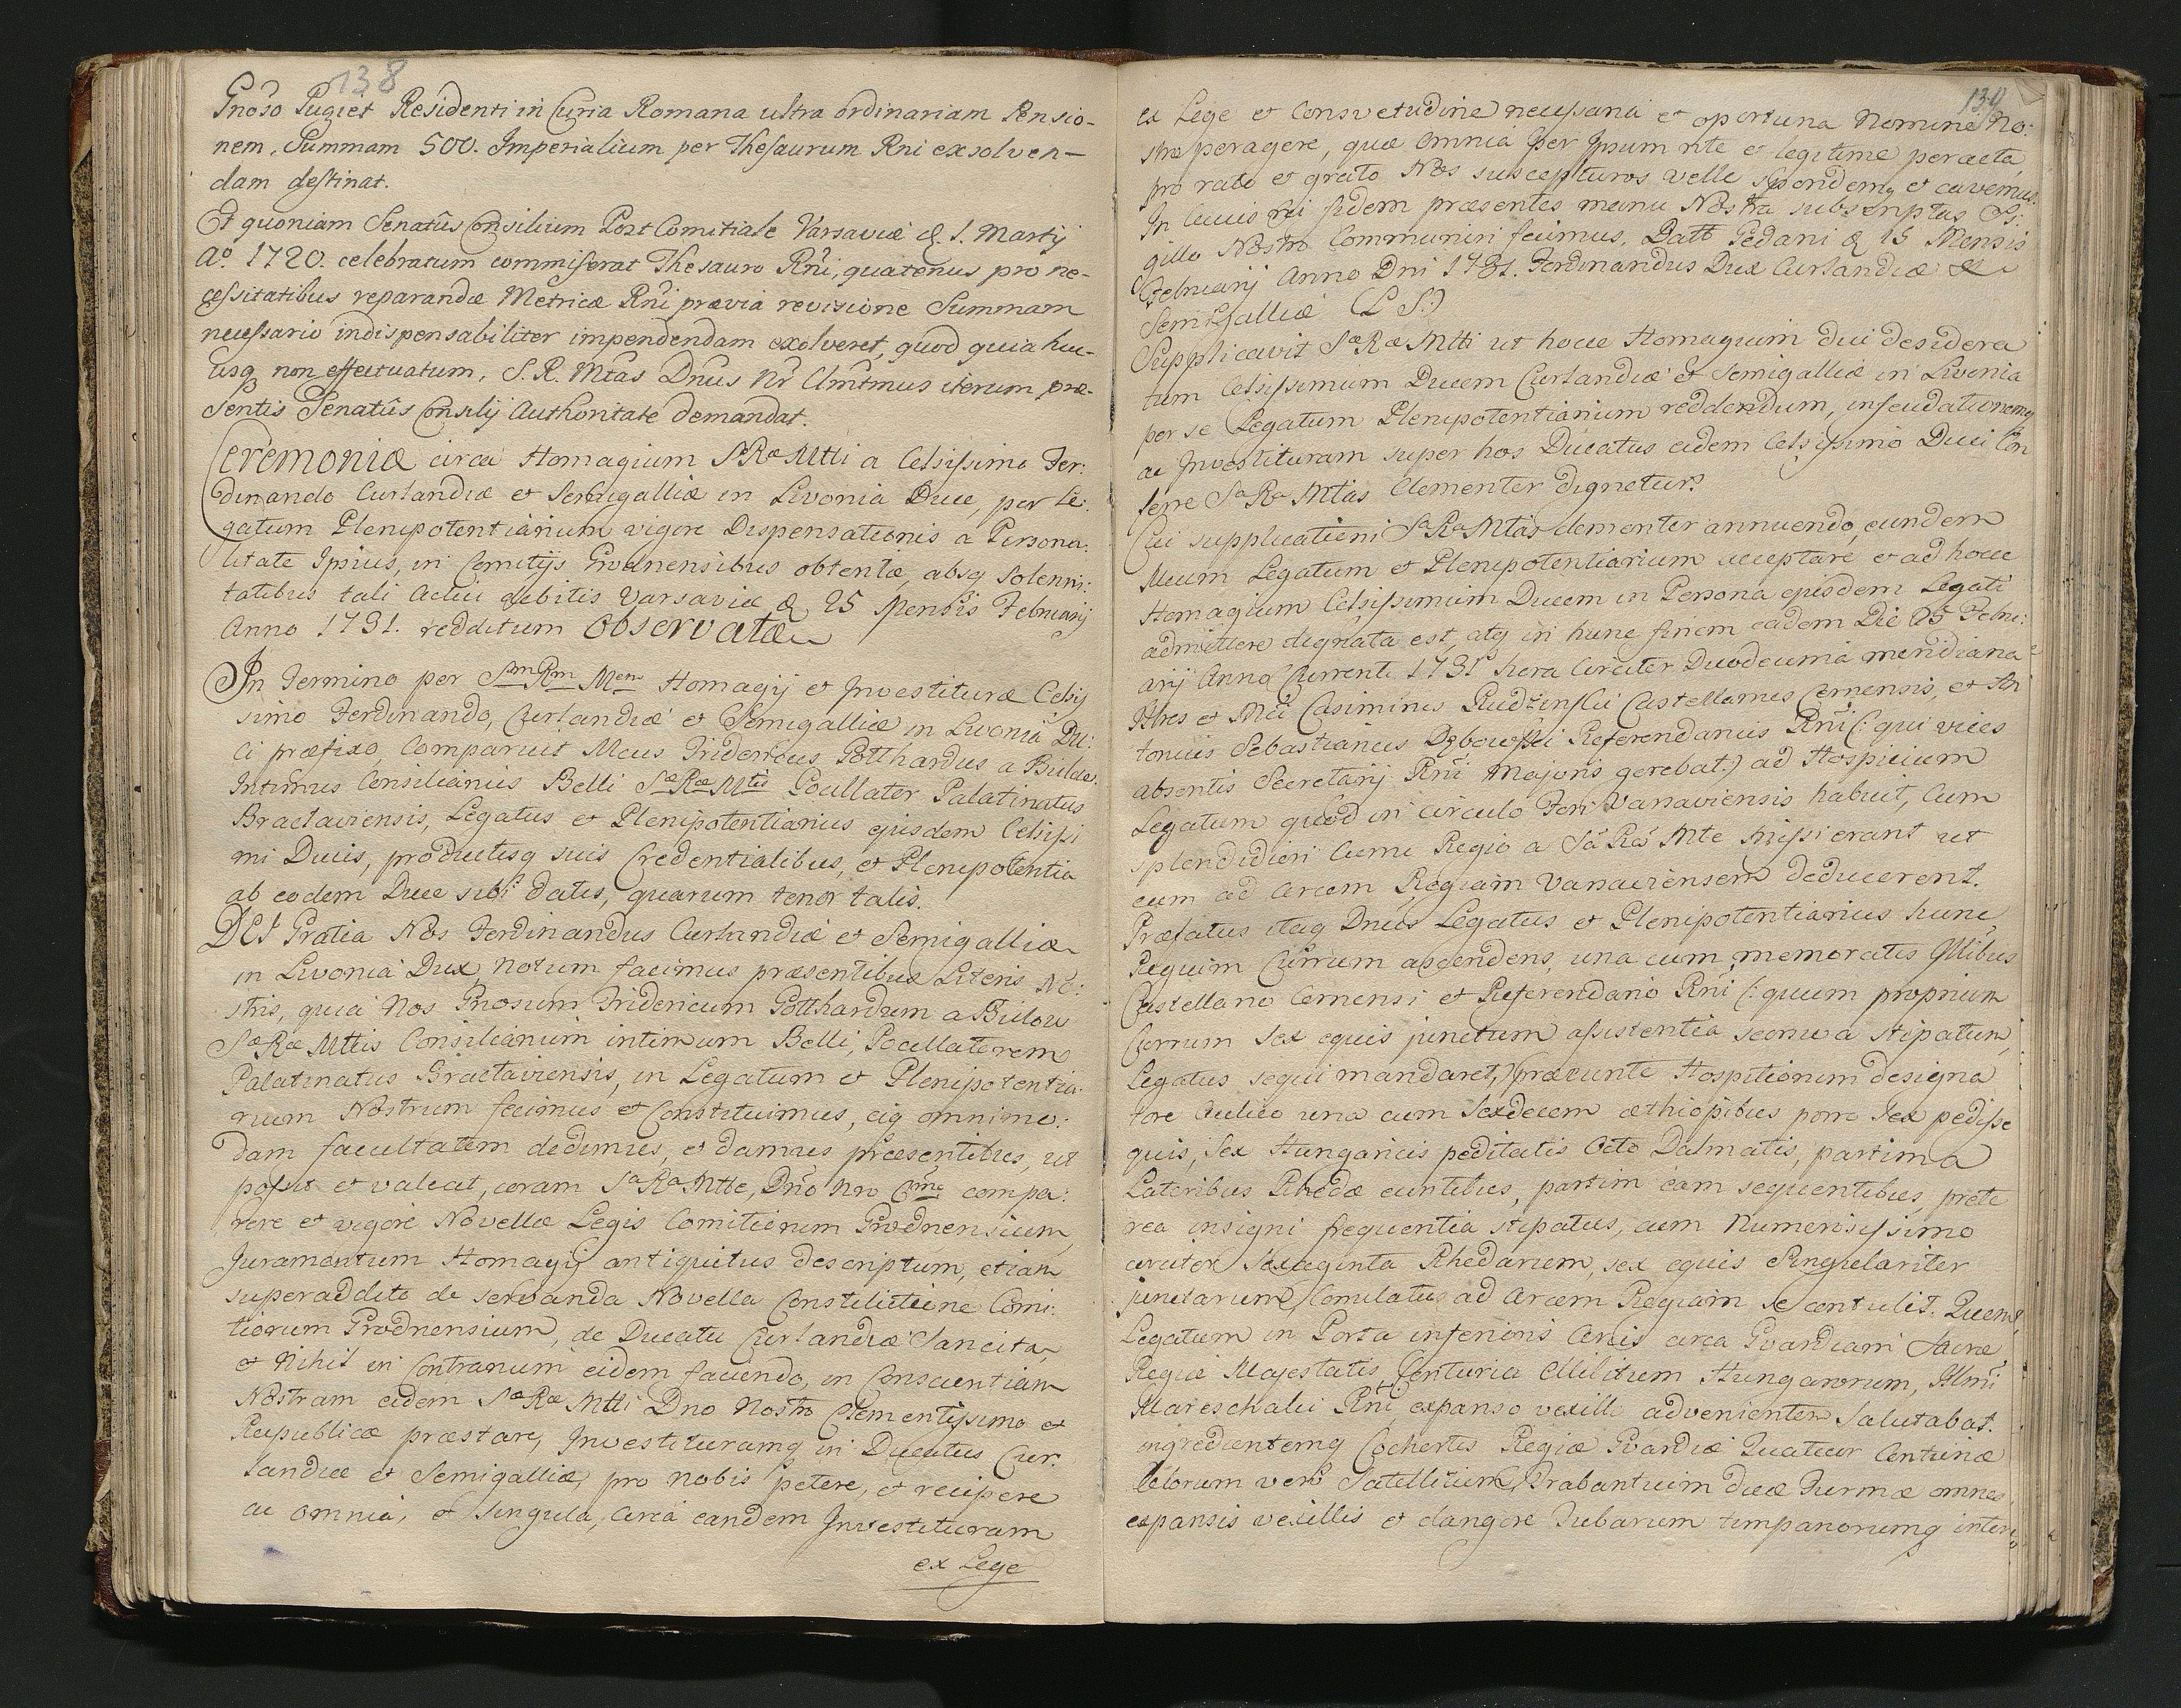 138
Gnoso Pugiet Residenti in Curia Romana ultra ordinariam Pensio-
nem, Summam 500. Imperialium per Thesaurum Rni exsolven-
dam destinat.
Et quoniam Senatûs Consilium Post Comitiale Varsaviæ d. 1. Martij
Aº. 1720. celebratum commiserat Thesauro Rni, quatenus pro ne-
cessitatibus reparandæ Metricæ Rni prævia revisione Summam
necessario indispensabiliter impendendam exolveret, quod quia huc-
usq non effectuatum, S. R. Mtas Dnus Nr Clmtmus iterum præ-
sentis Senatûs Consilij Authoritate demandat.
Ceremoniæ circa Homagium SæRæMtti a Celsissimo Fer:
dinando Curlandiæ et Semigalliæ in Livonia Duce, per Le:
gatum Plenipotentiarium vigore Dispensationis a Persona:
litate Ipsius, in Comitijs Grodnensibus obtentæ, absq Solenni:
tatibus tali Actui debitis Varsaviæ d. 25 Mensis Februarij
Anno 1731. redditum Observatæ
In Termino per SamRam Mem Homagij et Investituræ Celsis
simo Ferdinando, Curlandiæ et Semigalliæ in Livonia Du:
ci præfixo, Comparuit Mcus Fridericus Gotthardus a Bülau
Intimus Consiliarius Belli SæRæMtis Pocillator Palatinatus
Braclaviensis, Legatus et Plenipotentiarius ejusdem Celsissi
mi Ducis, productisq suis Credentialibus, et Plenipotentia
ab eodem Duce sibi datis, quarum tenor talis.
DEI Gratia Nos Ferdinandus Curlandiæ et Semigalliæ
in Livonia Dux, Notum facimus præsentibus Literis No:
stris, quia Nos Gnosum Fridericum Gotthardum a Bülow
SæRæ Mttis Consiliarium intimum Belli, Pocillatorem
Palatinatus Braclaviensis, in Legatum et Plenipotentia:
rium Nostrum fecimus et Constituimus, eiq omnimo:
dam facultatem dedimus, et damus præsentibus, ut
possit et valeat, coram SaRaMtte, Dno Nro Clmo compa:
rere et vigore Novellæ Legis Comitiorum Grodnensium,
Juramentum Homagij antiquitus descriptum, etiam
superaddito de servanda Novella Constitutione Comi:
tiorum Grodnensium, de Ducatu Curlandiæ Sancita,
et Nihil in Contrarium eidem faciendo, in Conscientiam
Nostram eidem SæRæ Mtti Dno Nostro Clementissimo et
Reipublicæ præstare, Investituramq in Ducatus Cur:
landiæ et Semigalliæ, pro nobis petere, et recipere
ac omnia, et singula, circa eandem Investituram
ex Lege
139
ex Lege et Consvetudine necessaria et oportuna Nomine No:
stro peragere, quæ omnia per Ipsum rite et legitime peracta
pro rato et grato Nos suscepturos velle spondemq et cavemus.
In Cuius rei fidem præsentes manu Nostra subscriptas Si:
gillo Nostro Communiri fecimus. Datt Gedani d 15 Mensis
Februarij Anno Dni 1731. Ferdinandus Dux Curlandiæ et
Semigalliæ (L S.)
Supplicavit SæRæMtti ut hocce Homagium diu desidera
tum Celsissimum Ducem Curlandiæ et Semigalliæ in Livonia
per se Legatum Plenipotentiarium reddendum, infeudationemq
ac Investituram super hos Ducatus eidem Celsissimo Duci Con
ferre SaRa Mtas Clementer dignetur.
Cui supplicationi SaRaMtas clementer annuendo, eundem
Mcum Legatum et Plenipotentiarium acceptare et ad hocce
Homagium Celsissimum Ducem in Persona ejusdem Legati
admittere dignata est, atq in hunc finem eadem Die 25 Febru:
arij Anno Currenti 1731 hora Circiter Duodecima meridiana
Illres et Mci Casimirus Rudzinski Castellanus Cernensis, et An
tonius Sebastianus Dębowski Referendarius Rni (: qui vices
absentis Secretarij Rni Majoris gerebat:) ad Hospitium
Legatum quod in circulo Fori Varsaviensis habuit, Cum
splendidiori Curru Regio a Sa Ra Mte missi erant ut
eum ad Arcem Regiam Varsaviensem deducerent.
Præfatus itaq Dnus Legatus et Plenipotentiarius hunc
Regium Currum ascendens, una cum memoratis Illibus
Castellano Cernensi et Referendario Rni (: quum proprium
Currum sex equis junctum assistentia seorsiva stipatum,
Legatus sequi mandaret,) præeunte Hospitiorum designa
tore Aulico una cum Sexdecem æthiopibus porro sex pedisse
quis, sex Hungaricis peditatis Octo Dalmatis, partim a
Lateribus Rhedæ euntibus, partim eam sequentibus præte
rea insigni frequentia stipatus, cum Numerosissimo
circiter Sexaginta Rhedarum, sex equis Singulariter
junctarum Comitatu, ad Arcem Regiam se contulit. Quem
Legatum in Porta inferioris Arcis area Gvardiam Sacræ
Regiæ Majestatis, Centuria Militum Hungarorum, Illmi
Mareschalci Rni, expanso vexillo advenientem Salutabat.
ingredientemq Cohortis Regiæ Gvardiæ Quatuor Centuriæ
Satellitum Drabantuum duæ Turmæ omnes
expansis vexillis et clangore Tubarum timpanorumq